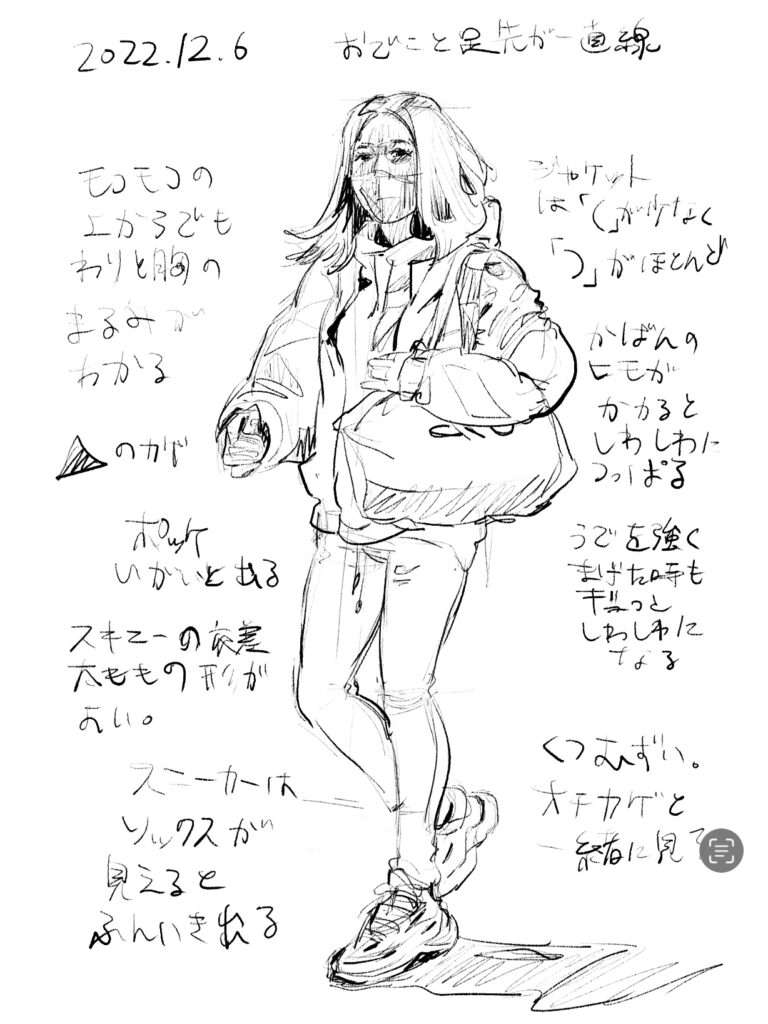 2022.12.6
おでこと足先が一直線
モコモコの
上からでも
わりと胸の
まるみが
わかる
のカゲ
ポッケ
いがいと出る
スキニーの
太ももの形が
よい。
スニーカーは
ソックスが
見えると
ふんいき出る
ジャケット
は「く」が少なく
「つ」がほとんど
かばんの
ヒモが
かかると
しわしわに
つっぱる
うでを強く
まげた時も
ギュっと
しわしわに
なる
くつむずい。
オチカゲと
一緒に見て